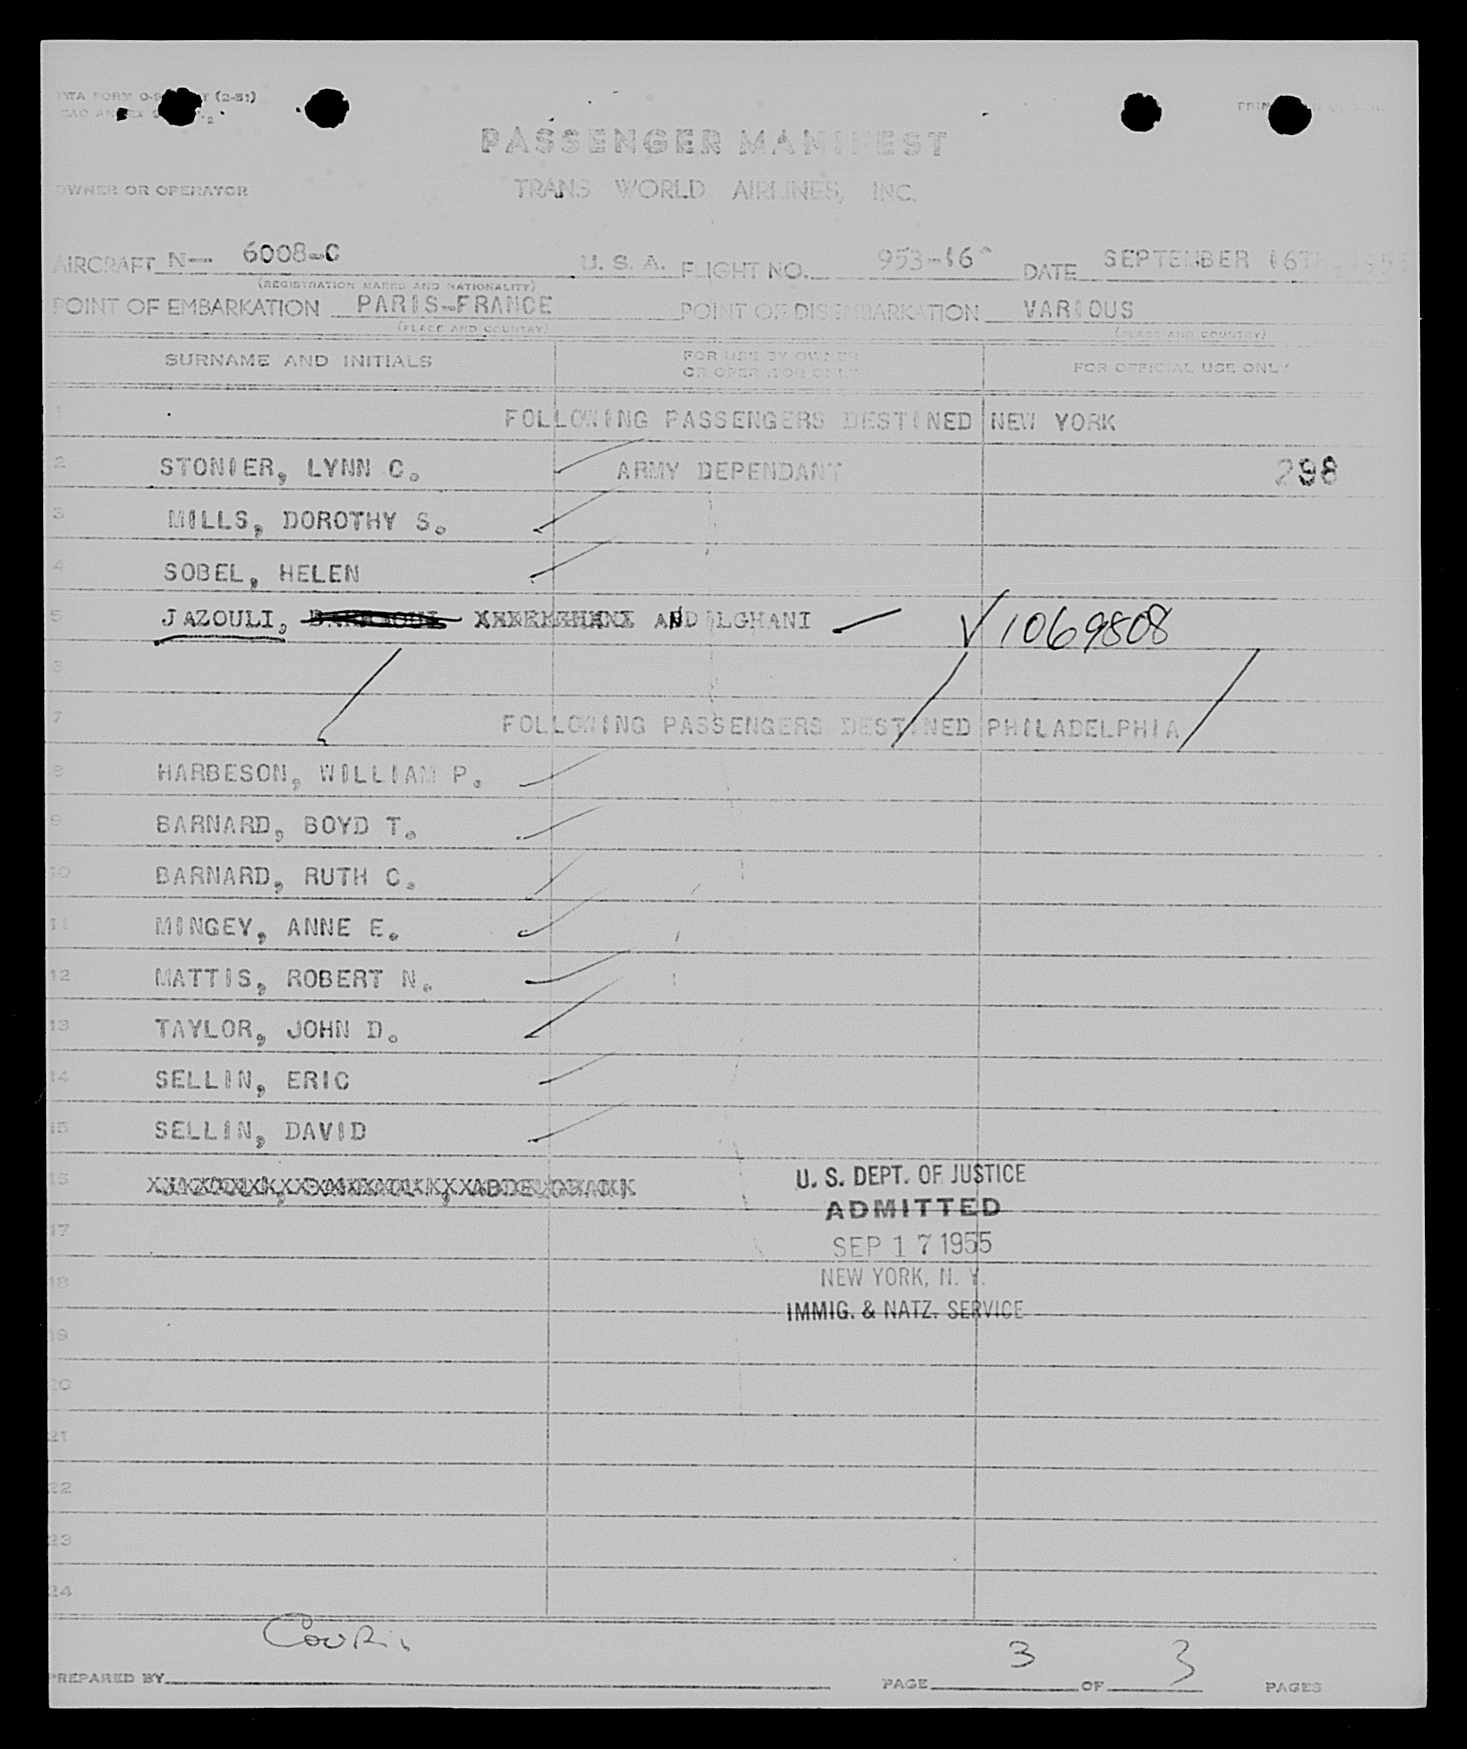 PASSENGER MANIFEST
OWNER OR OPERATOR TRANS WORLD AIRLINES, INC.
AIRCRAFT N-- 6008-C U. S. A. FLIGHT NO. 953-16 DATE SEPTEMBER 16TH
(REGISTRATION MARKS AND NATIONALITY)
POINT OF EMBARKATION PARIS-FRANCE POINT OF DISEMBARKATION VARIOUS
(PLACE AND COUNTRY) (PLACE AND COUNTRY)
SURNAME AND INITIALS FOR USE BY OWNER OR OPERATOR ONLY FOR OFFICIAL USE ONLY
1 FOLLOWING PASSENGERS DESTINED NEW YORK
2 STONIER, LYNN C. ARMY DEPENDANT 298
3 MILLS, DOROTHY S.
4 SOBEL, HELEN
5 JAZOULI, ABDELGHANI √ 1069808
6
7 FOLLOWING PASSENGERS DESTINED PHILADELPHIA
8 HARBESON, WILLIAM P.
9 BARNARD, BOYD T.
10 BARNARD, RUTH C.
11 MINGEY, ANNE E.
12 MATTIS, ROBERT N.
13 TAYLOR, JOHN D.
14 SELLIN, ERIC
15 SELLIN, DAVID
16
U. S. DEPT. OF JUSTICE
ADMITTED
17
SEP 17 1955
18 NEW YORK, N. Y.
IMMIG. & NATZ. SERVICE
19
20
21
22
23
24
PREPARED BY PAGE 3 OF 3 PAGES